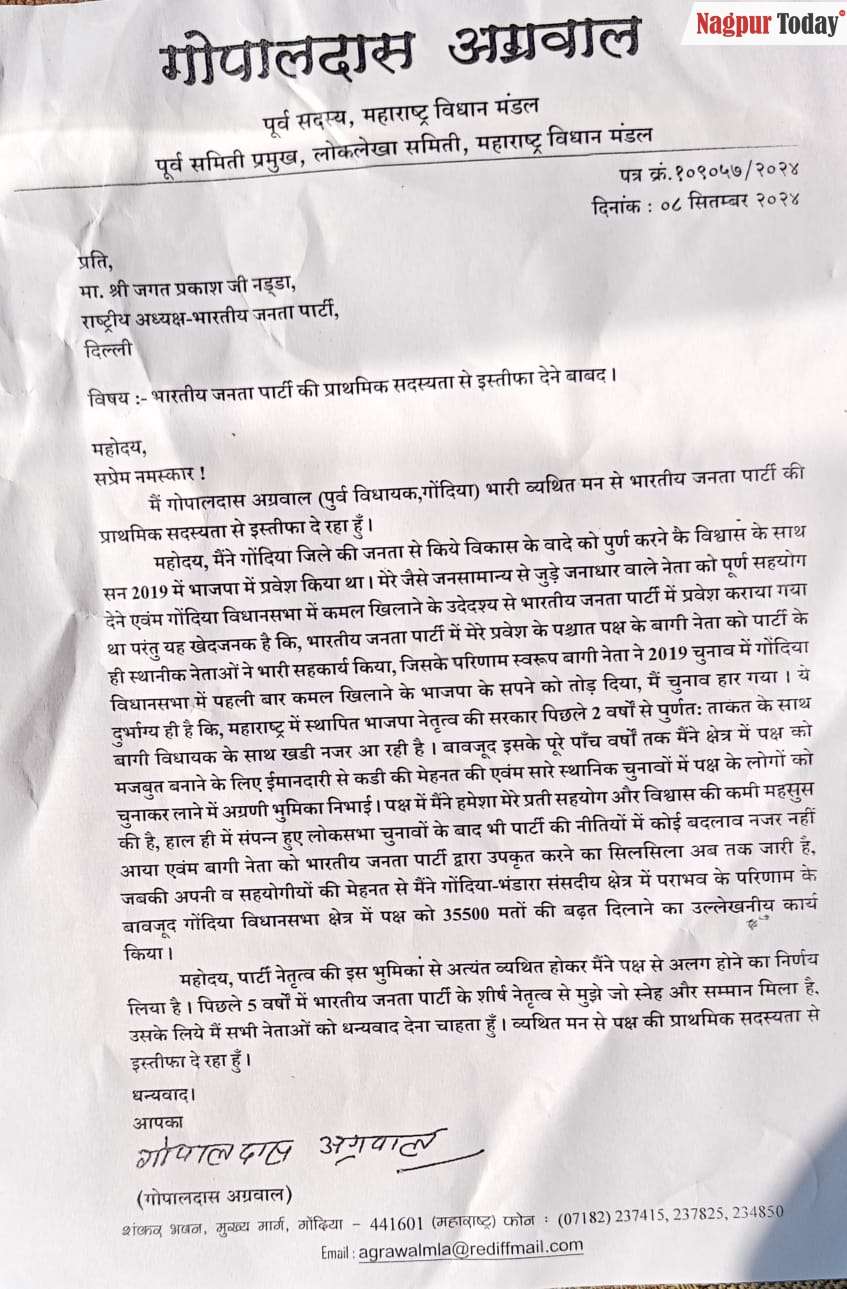 Nagpur Today
गोपालदास अग्रवाल
पूर्व सदस्य, महाराष्ट्र विधान मंडल
पूर्व समिती प्रमुख, लोकलेखा समिती, महाराष्ट्र विधान मंडल
पत्र क्रं.१०९०५७/२०२४
दिनांक : ०८ सितम्बर २०२४
प्रति,
मा. श्री जगत प्रकाश जी नड्डा,
राष्ट्रीय अध्यक्ष-भारतीय जनता पार्टी,
दिल्ली
विषय :- भारतीय जनता पार्टी की प्राथमिक सदस्यता से इस्तीफा देने बाबद।
महोदय,
सप्रेम नमस्कार !
मैं गोपालदास अग्रवाल (पुर्व विधायक,गोंदिया) भारी व्यथित मन से भारतीय जनता पार्टी की
प्राथमिक सदस्यता से इस्तीफा दे रहा हूँ।
महोदय, मैंने गोंदिया जिले की जनता से किये विकास के वादे को पुर्ण करने कै विश्वास के साथ
सन 2019 में भाजपा में प्रवेश किया था। मेरे जैसे जनसामान्य से जुड़े जनाधार वाले नेता को पूर्ण सहयोग
देने एवंम गोंदिया विधानसभा में कमल खिलाने के उदेदश्य से भारतीय जनता पार्टी में प्रवेश कराया गया
था परंतु यह खेदजनक है कि, भारतीय जनता पार्टी में मेरे प्रवेश के पश्चात पक्ष के बागी नेता को पार्टी के
ही स्थानीक नेताओं ने भारी सहकार्य किया, जिसके परिणाम स्वरूप बागी नेता ने 2019 चुनाव में गोंदिया
विधानसभा में पहली बार कमल खिलाने के भाजपा के सपने को तोड़ दिया, मैं चुनाव हार गया । ये
दुर्भाग्य ही है कि, महाराष्ट्र में स्थापित भाजपा नेतृत्व की सरकार पिछले 2 वर्षो से पुर्णत: ताकत के साथ
बागी विधायक के साथ खडी नजर आ रही है । बावजूद इसके पूरे पाँच वर्षो तक मैंने क्षेत्र में पक्ष को
मजबुत बनाने के लिए ईमानदारी से कडी की मेहनत की एवंम सारे स्थानिक चुनावों में पक्ष के लोगों को
चुनाकर लाने में अग्रणी भुमिका निभाई। पक्ष में मैंने हमेशा मेरे प्रती सहयोग और विश्वास की कमी महसुस
की है, हाल ही में संपन्न हुए लोकसभा चुनावों के बाद भी पार्टी की नीतियों में कोई बदलाव नजर नहीं
आया एवंम बागी नेता को भारतीय जनता पार्टी द्वारा उपकृत करने का सिलसिला अब तक जारी है,
जबकी अपनी व सहयोगीयों की मेहनत से मैंने गोंदिया-भंडारा संसदीय क्षेत्र में पराभव के परिणाम के
बावजूद गोंदिया विधानसभा क्षेत्र में पक्ष को 35500 मतों की बढ़त दिलाने का उल्लेखनीय कार्य
किया।
महोदय, पार्टी नेतृत्व की इस भुमिका से अत्यंत व्यथित होकर मैंने पक्ष से अलग होने का निर्णय
लिया है । पिछले 5 वर्षों में भारतीय जनता पार्टी के शीर्ष नेतृत्व से मुझे जो स्नेह और सम्मान मिला है,
उसके लिये मैं सभी नेताओं को धन्यवाद देना चाहता हुँ। व्यथित मन से पक्ष की प्राथमिक सदस्यता से
इस्तीफा दे रहा हूँ।
धन्यवाद।
आपका
गोपालदास अग्रवाल
(गोपालदास अग्रवाल)
शंकर भवन, मुख्य मार्ग, गोंदिया - 441601 (महाराष्ट्र) फोन : (07182) 237415, 237825, 234850
Email : agrawalmla@rediffmail.com